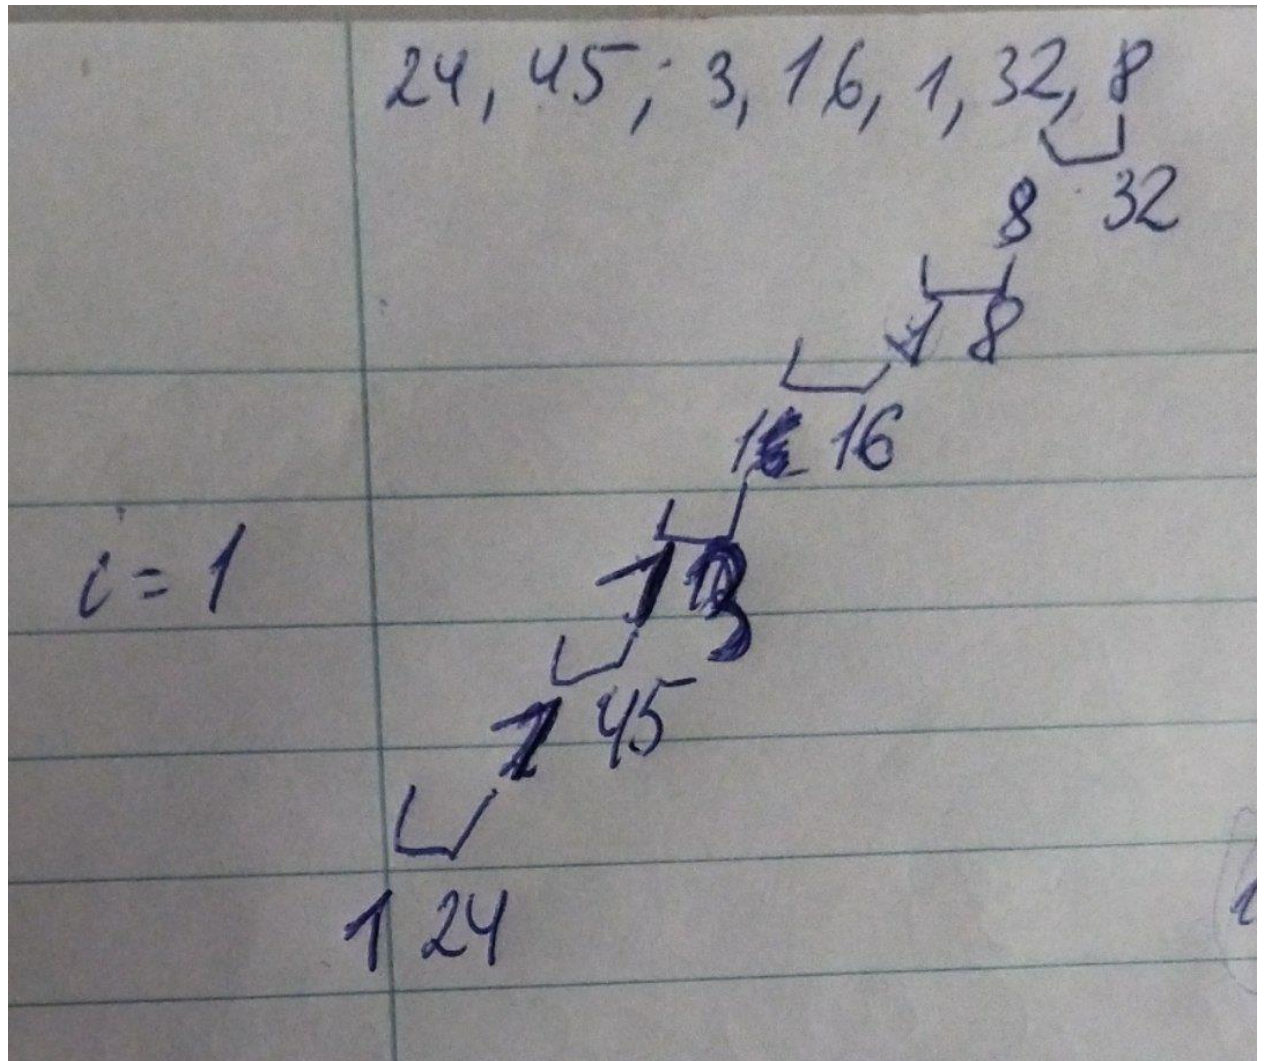 24, 45, 3, 16, 1, 32, 8
8 32
1 8
1 16
i = 1
1 3
1 45
1 24